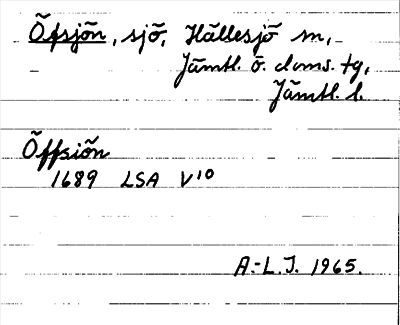 Öfsjön, sjö, Hällesjö sn,
Jämtl. ö. doms. tg,
Jämtl. l.
Öffsiön
1689 LSA V10
A.-L.J. 1965.